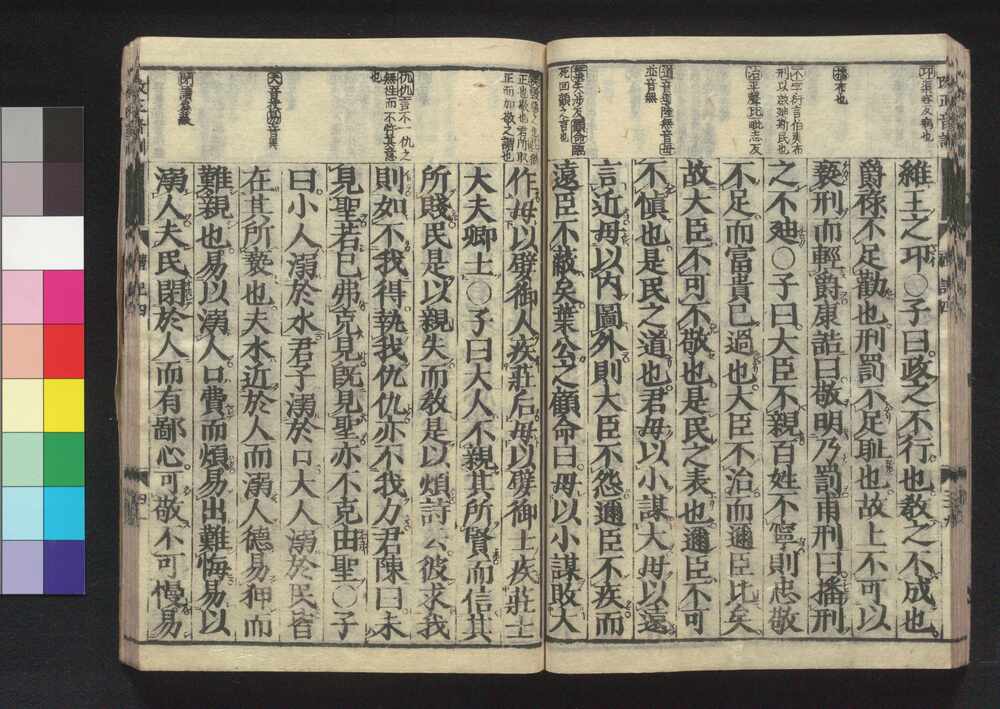 維王之邛○子曰政之不行也教之不成也
爵祿不足勸也刑罰不足恥也故上不可以
褻刑而輕爵康誥曰敬明乃罰甫刑曰播刑
之不迪○子曰大臣不親百姓不寧則忠敬
不足而富貴已過也大臣不治而邇臣比矣
故大臣不可不敬也是民之表也邇臣不可
不慎也是民之道也君毋以小謀大毋以遠
言近毋以內圖外則大臣不怨邇臣不疾而
遠臣不蔽矣葉公之顧命曰毋以小謀敗大
作毋以嬖御人疾莊后毋以嬖御士疾莊士
大夫卿士○子曰大人不親其所賢而信其
所賤民是以親失而教是以煩詩云彼求我
則如不我得執我仇仇亦不我力君陳曰未
見聖若己弗克見既見聖亦不克由聖○子
曰小人溺於水君子溺於口大人溺於民皆
在其所褻也夫水近於人而溺人德易狎而
難親也易以溺人口費而煩易出難悔易以
溺人夫民閉於人而有鄙心可敬不可慢易
播布也
不字衍言伯夷布
刑以啟迪斯民也
治平聲比毗志反
並音無
死回顧之言也
仇仇言不一仇之
無往而不忤其意
也
夫音扶